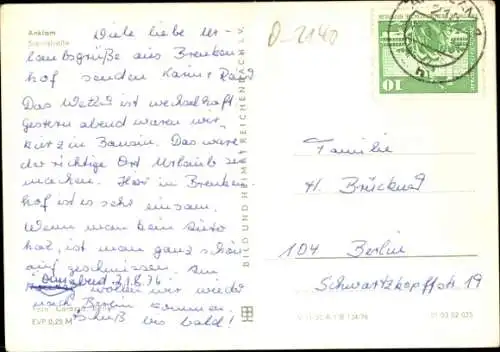 Anklam
Steinstraße
D-2140
Viele liebe Ur-
laubsgrüße aus Breeken-
hof senden Karin + Raid
Das Wetter ist wechselhaft.
Gestern abend waren wir
kurz in Bansin. Das wäre
der richtige Ort Urlaub zu
machen. Hier in Breeken-
hof ist es sehr einsam.
Wenn man kein Auto
hat, ist man ganz schön
aufgeschmissen. Am
Sonnabend 21.8.76
wollen wir wieder
nach Berlin kommen.
Tschüß bis bald!
EVP 0,25 M
BILD UND HEIMAT REICHENBACH I. V.
10
Familie
H. Brückner
104 Berlin
Schwartzkopffstr. 19
01 03 02 025